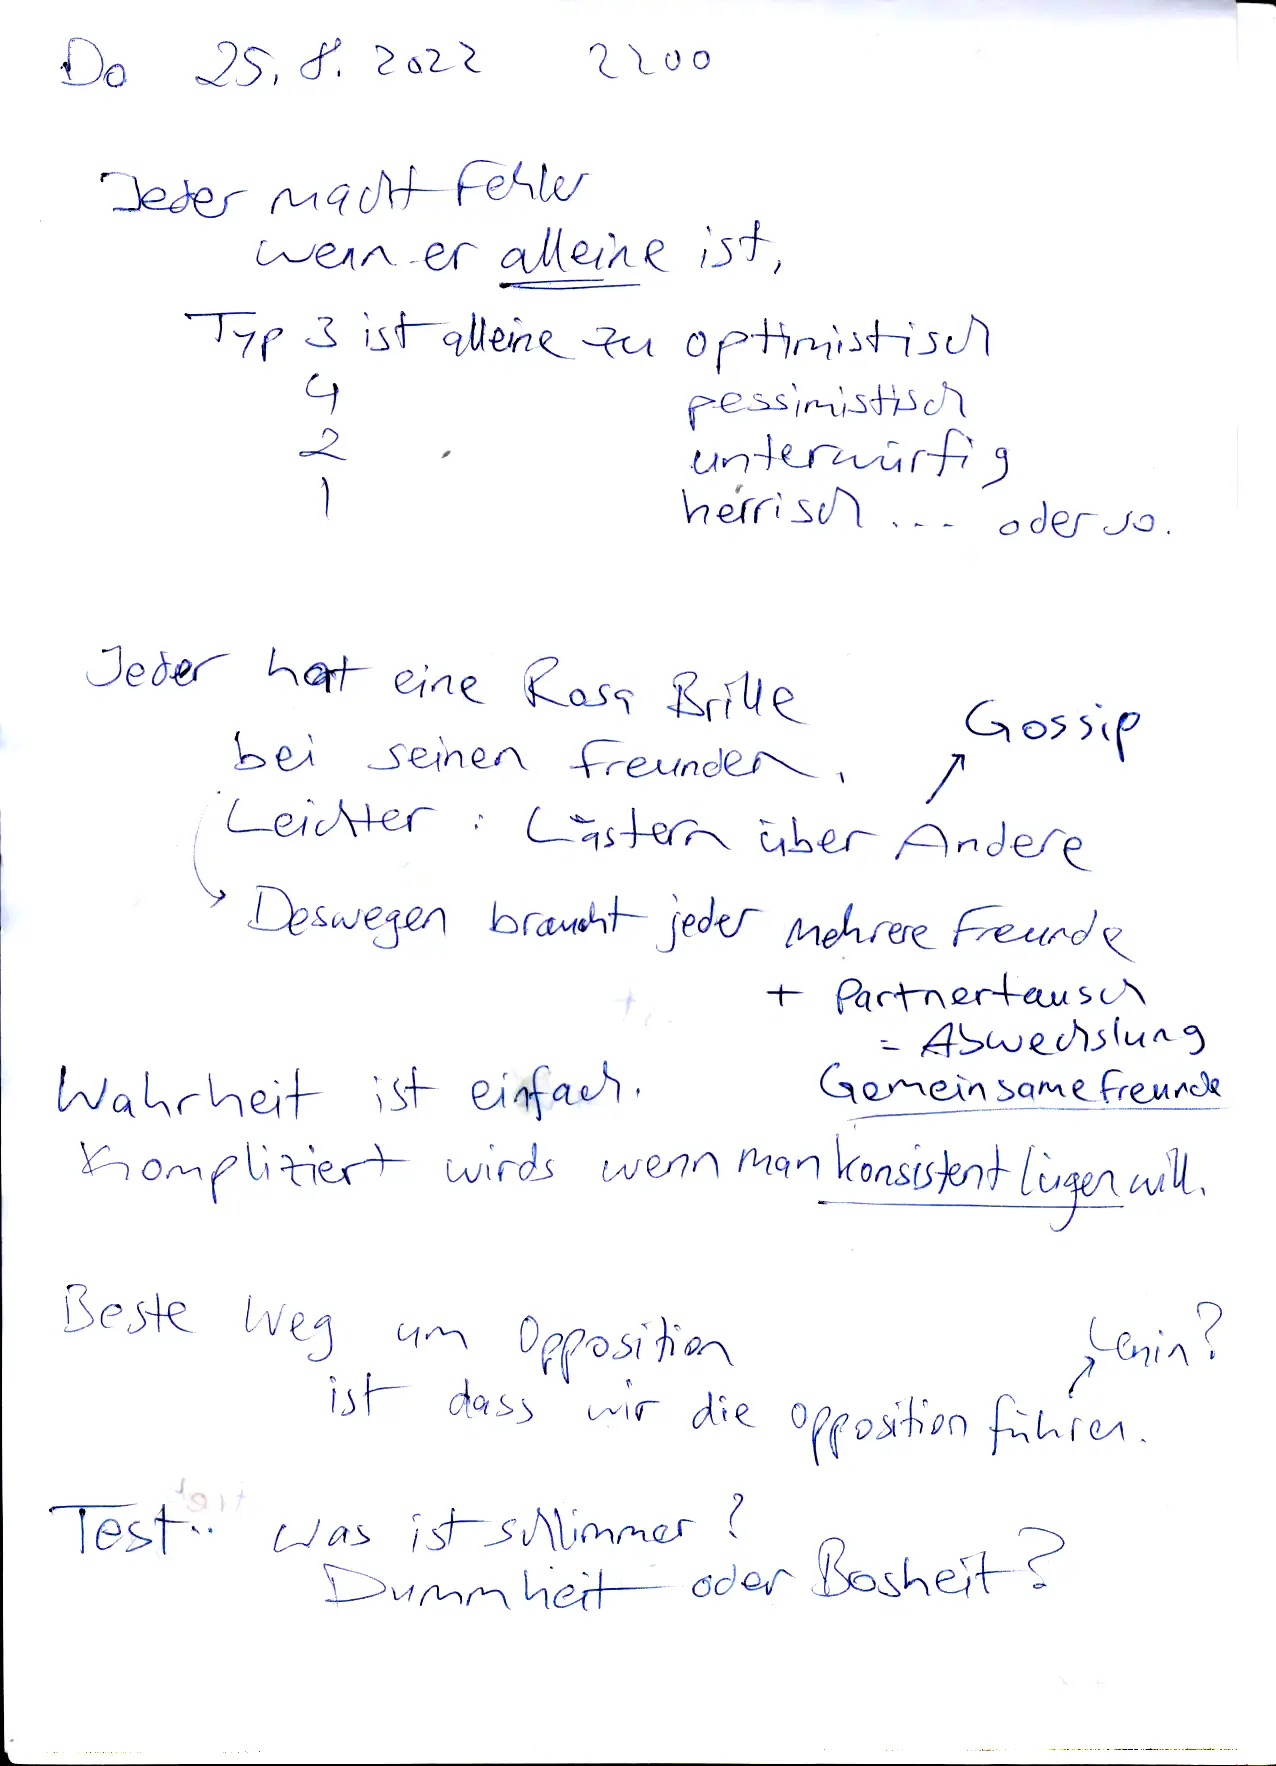 Do 25.8.2022 2200
Jeder macht Fehler
wenn er alleine ist,
Typ 3 ist alleine zu optimistisch
4 pessimistisch
2 unterwürfig
1 herrisch ... oder so.
Jeder hat eine Rosa Brille
bei seinen Freunden.
Gossip
Leichter : Lästern über Andere
Deswegen braucht jeder mehrere Freunde
+ Partnertausch
= Abwechslung
Gemeinsame Freunde
Wahrheit ist einfach.
Kompliziert wirds wenn man konsistent lügen will.
Beste Weg um Opposition
Lenin?
ist dass wir die opposition führen.
Test.. Was ist schlimmer?
Dummheit oder Bosheit?